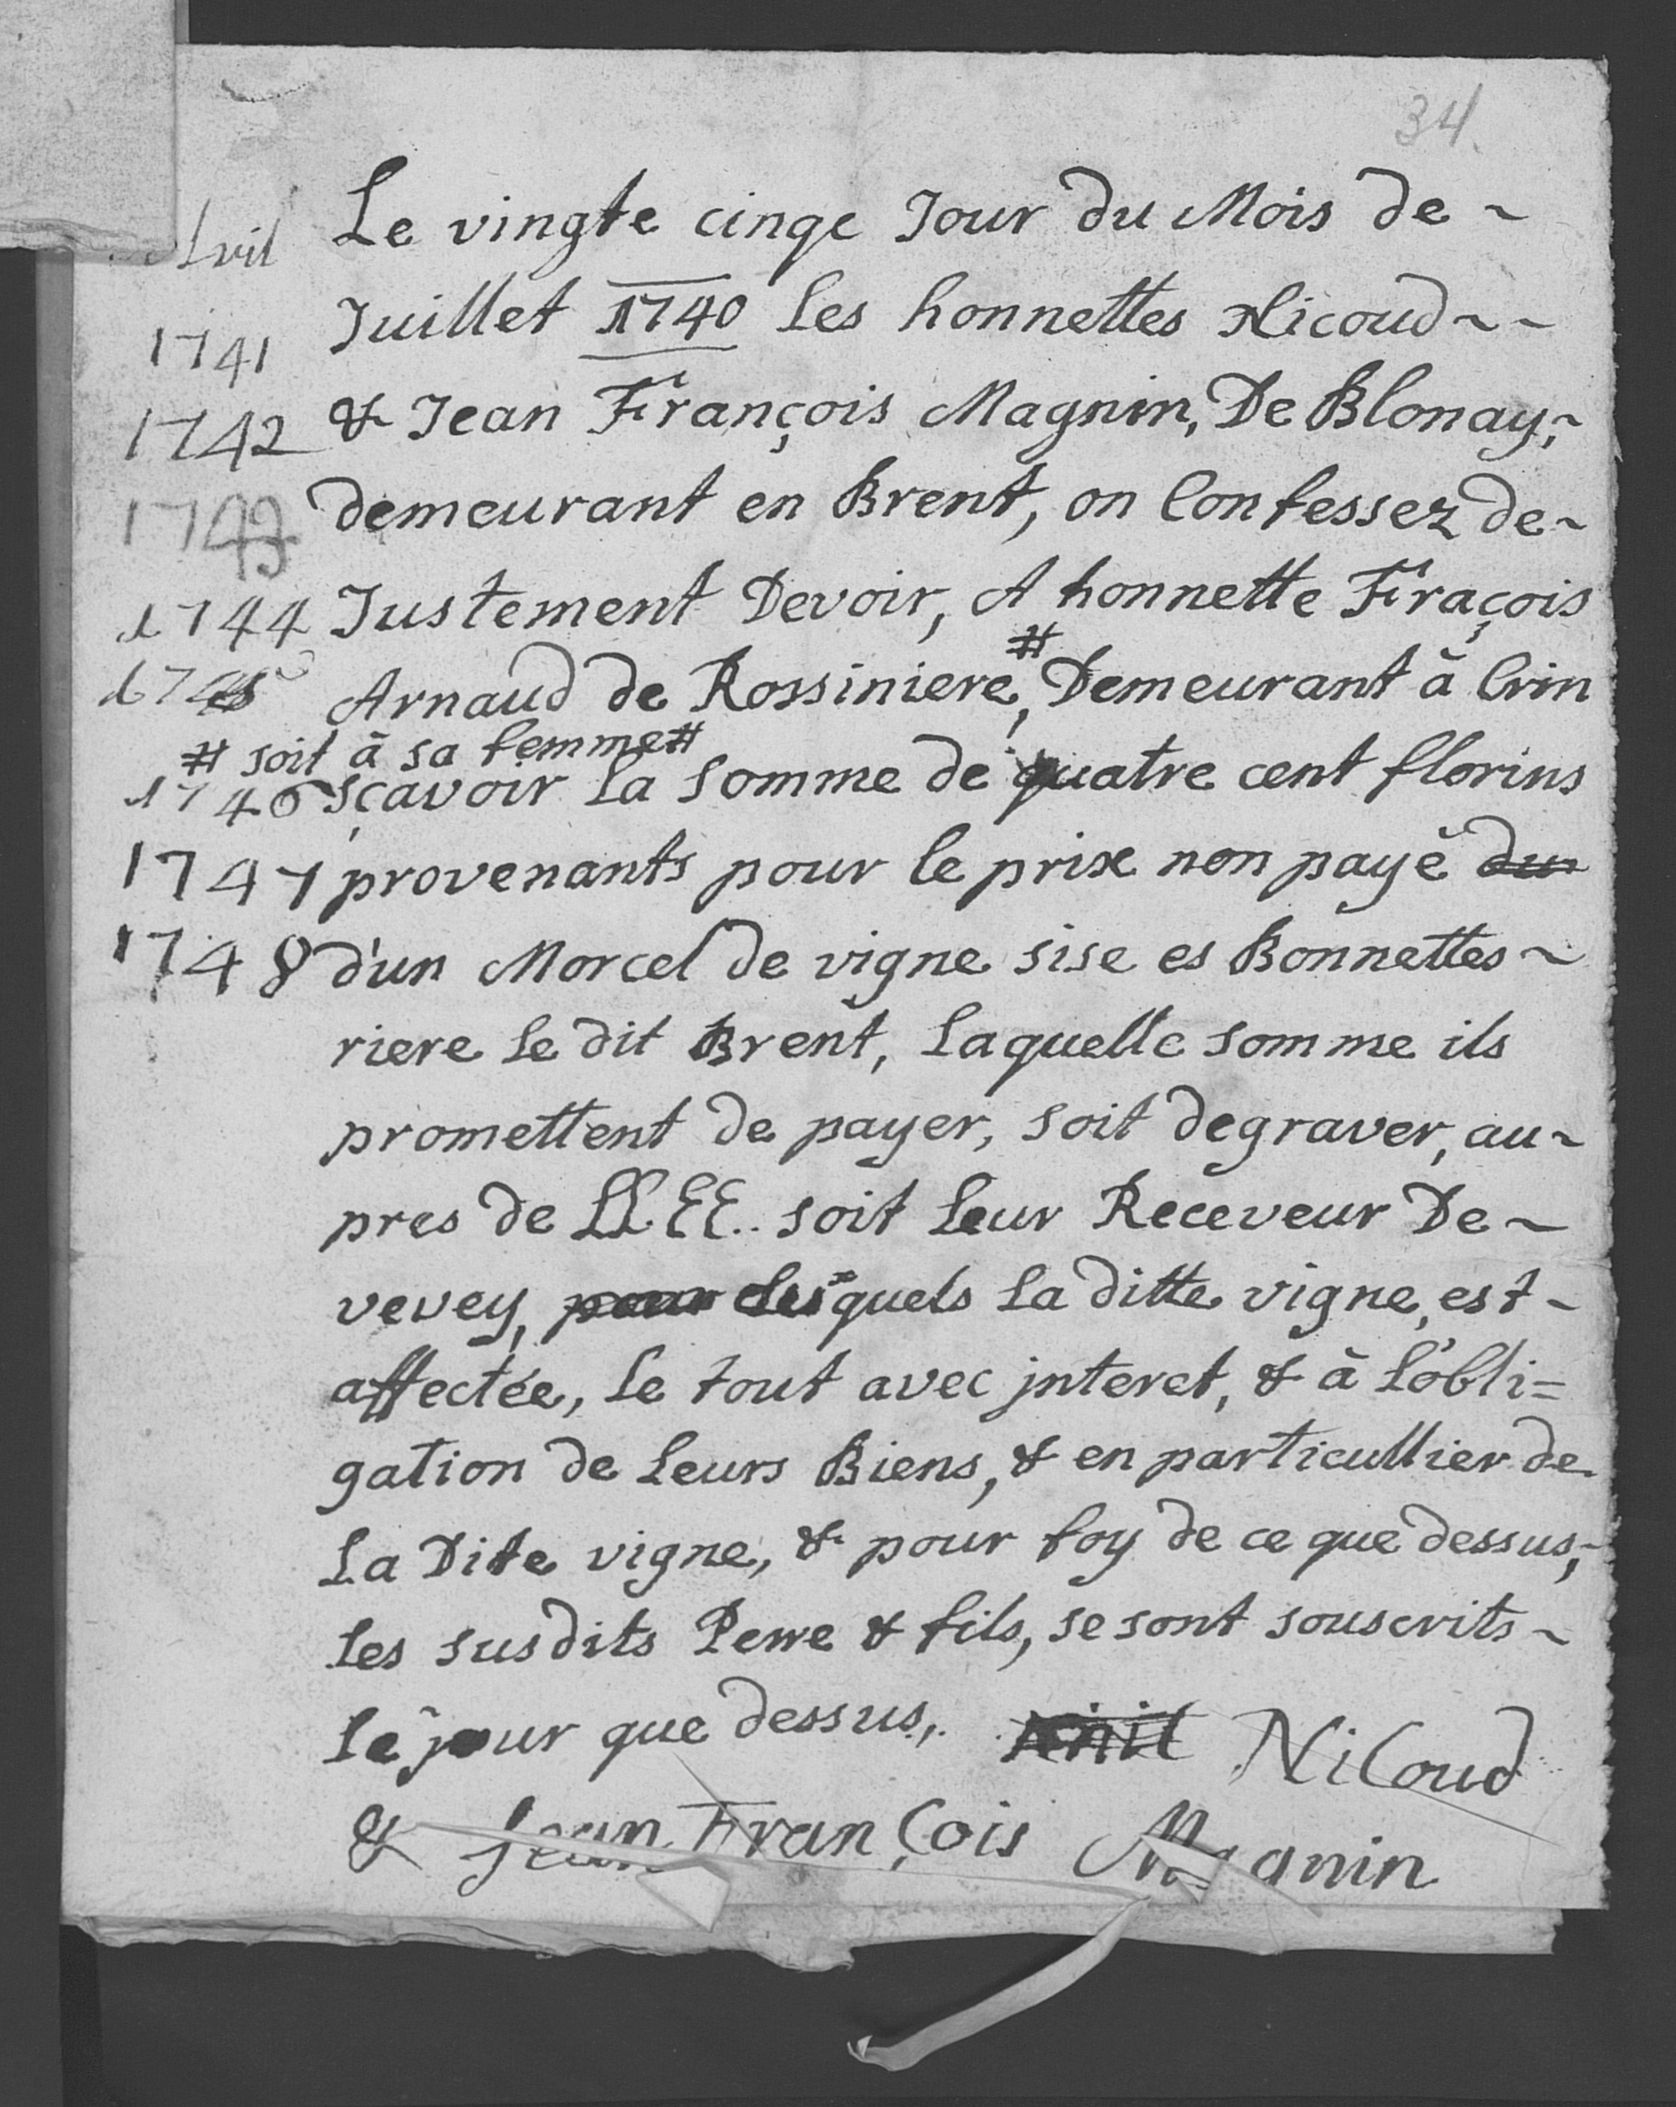 34.
Le vingte cinqe Jour du Mois de ~
Juillet 1740 les honnettes Nicoud ~ ~
& Jean François Magnin, De Blonay, ~
demeurant en Brent, on Confessez de ~
Justement Devoir, A honnette Fraçois
Arnaud de Rossiniere,# Demeurant à Crin
# soit à sa femme #
sçavoir la somme de quatre cent florins
provenants pour le prix non payé du
d'un Morcel de vigne sise es Bonnettes ~
riere le dit Brent, laquelle somme ils
promettent de payer, soit degraver, au ~
pres de LL.EE.. soit leur Receveur De ~
vevey, pour lesquels la ditte vigne, est -
affectée, le tout avec jnteret, & à l'obli=
gation de leurs Biens, & en particullier de
la Dite vigne, & pour foy de ce que dessus, ~
les susdits Perre & fils, se sont souscrits ~
le jour que dessus,. Nicoud
& Jean François Magnin
1741
1742
1743
1744
1745
1746
1747
1748